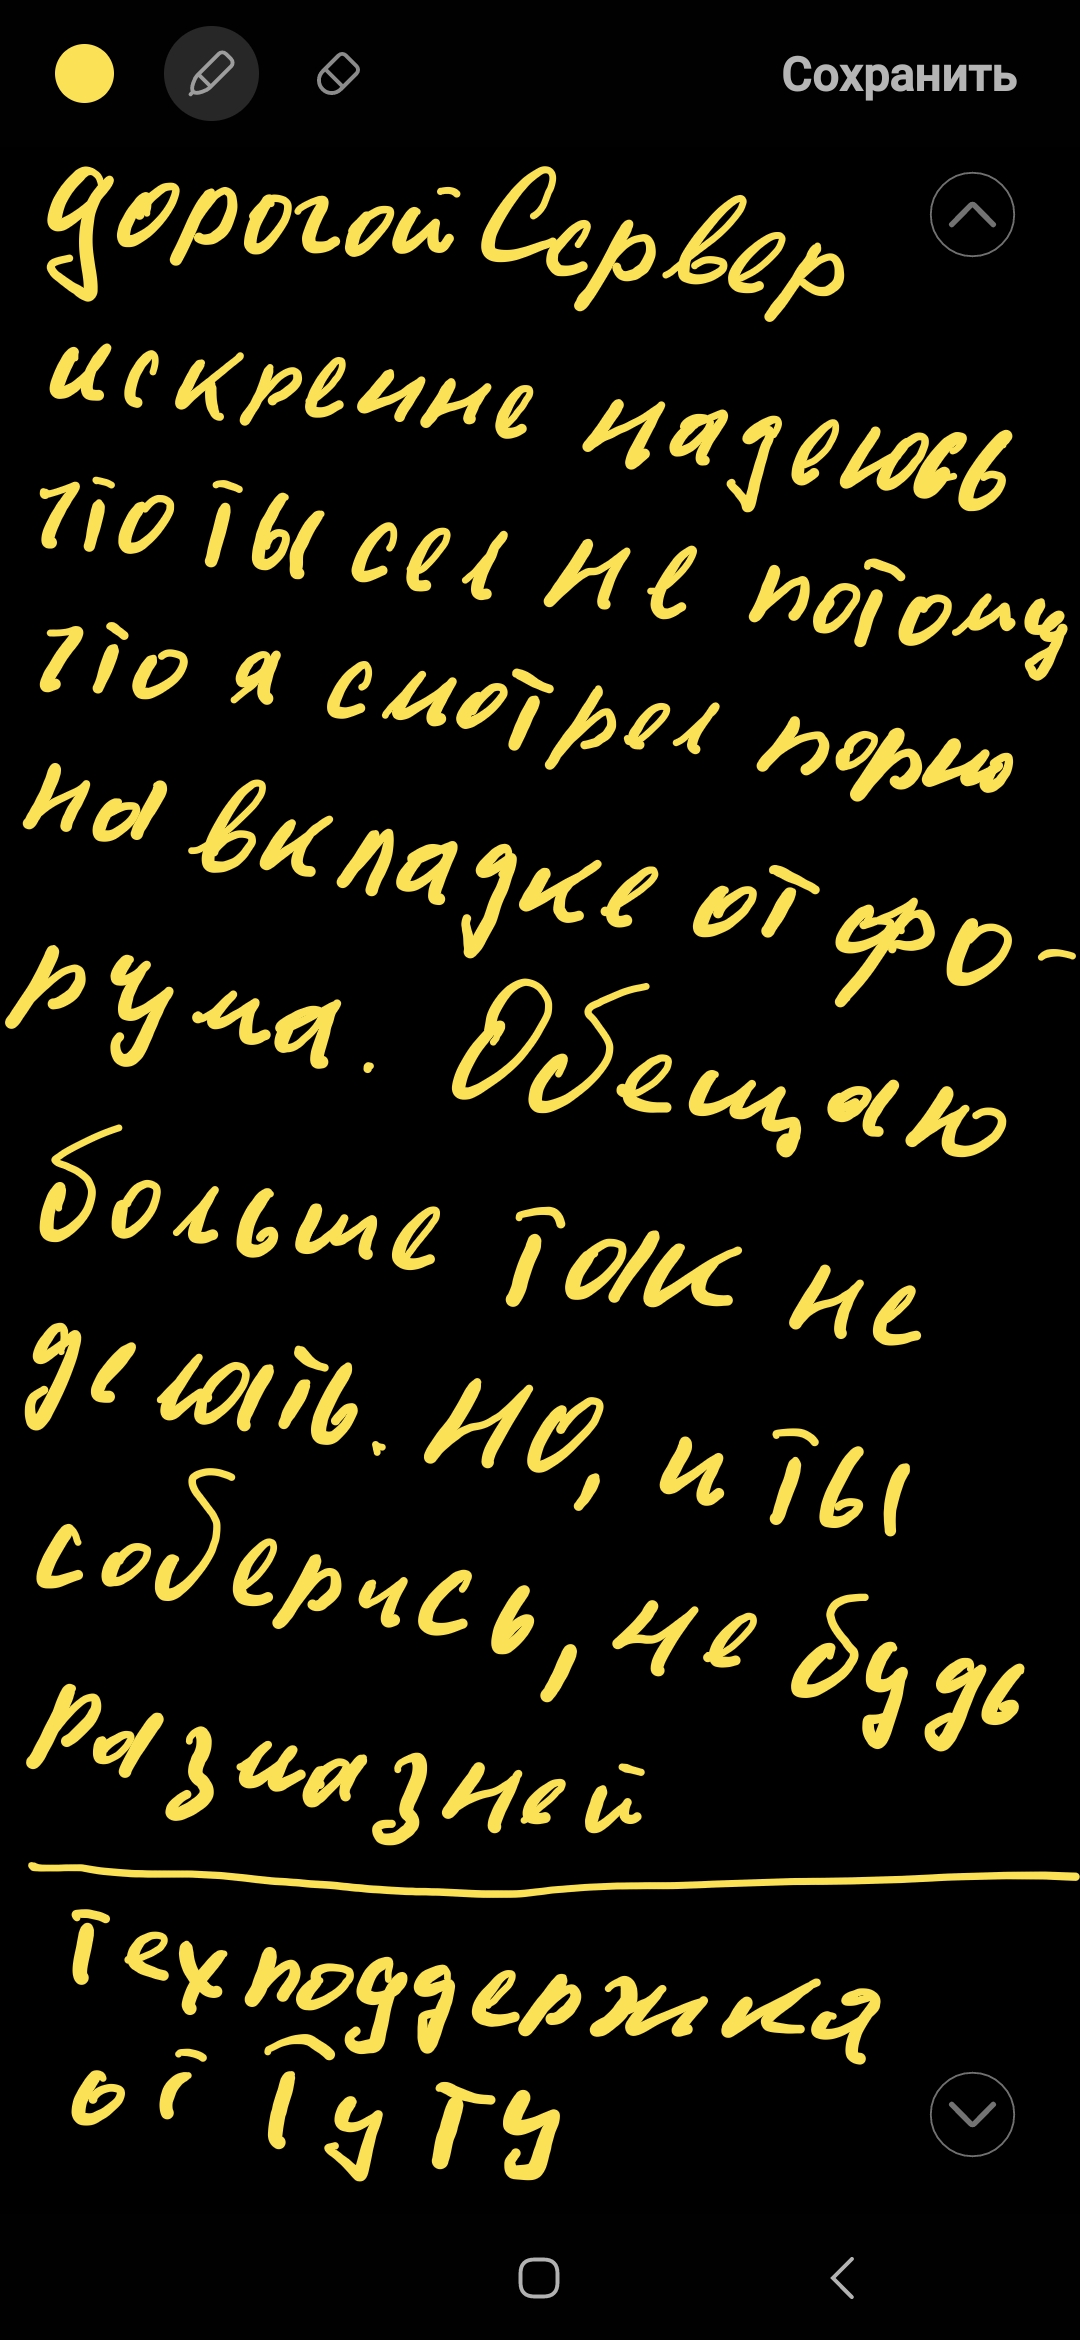 Сохранить
дорогой Сервер
искренне надеюсь
что ты сел не потому
что я смотрел порно
на вкладке от фо-
рума. Обещаю
больше так не
делать. НО, и ты
соберись, не будь
размазней
Техподдержка
от Туту